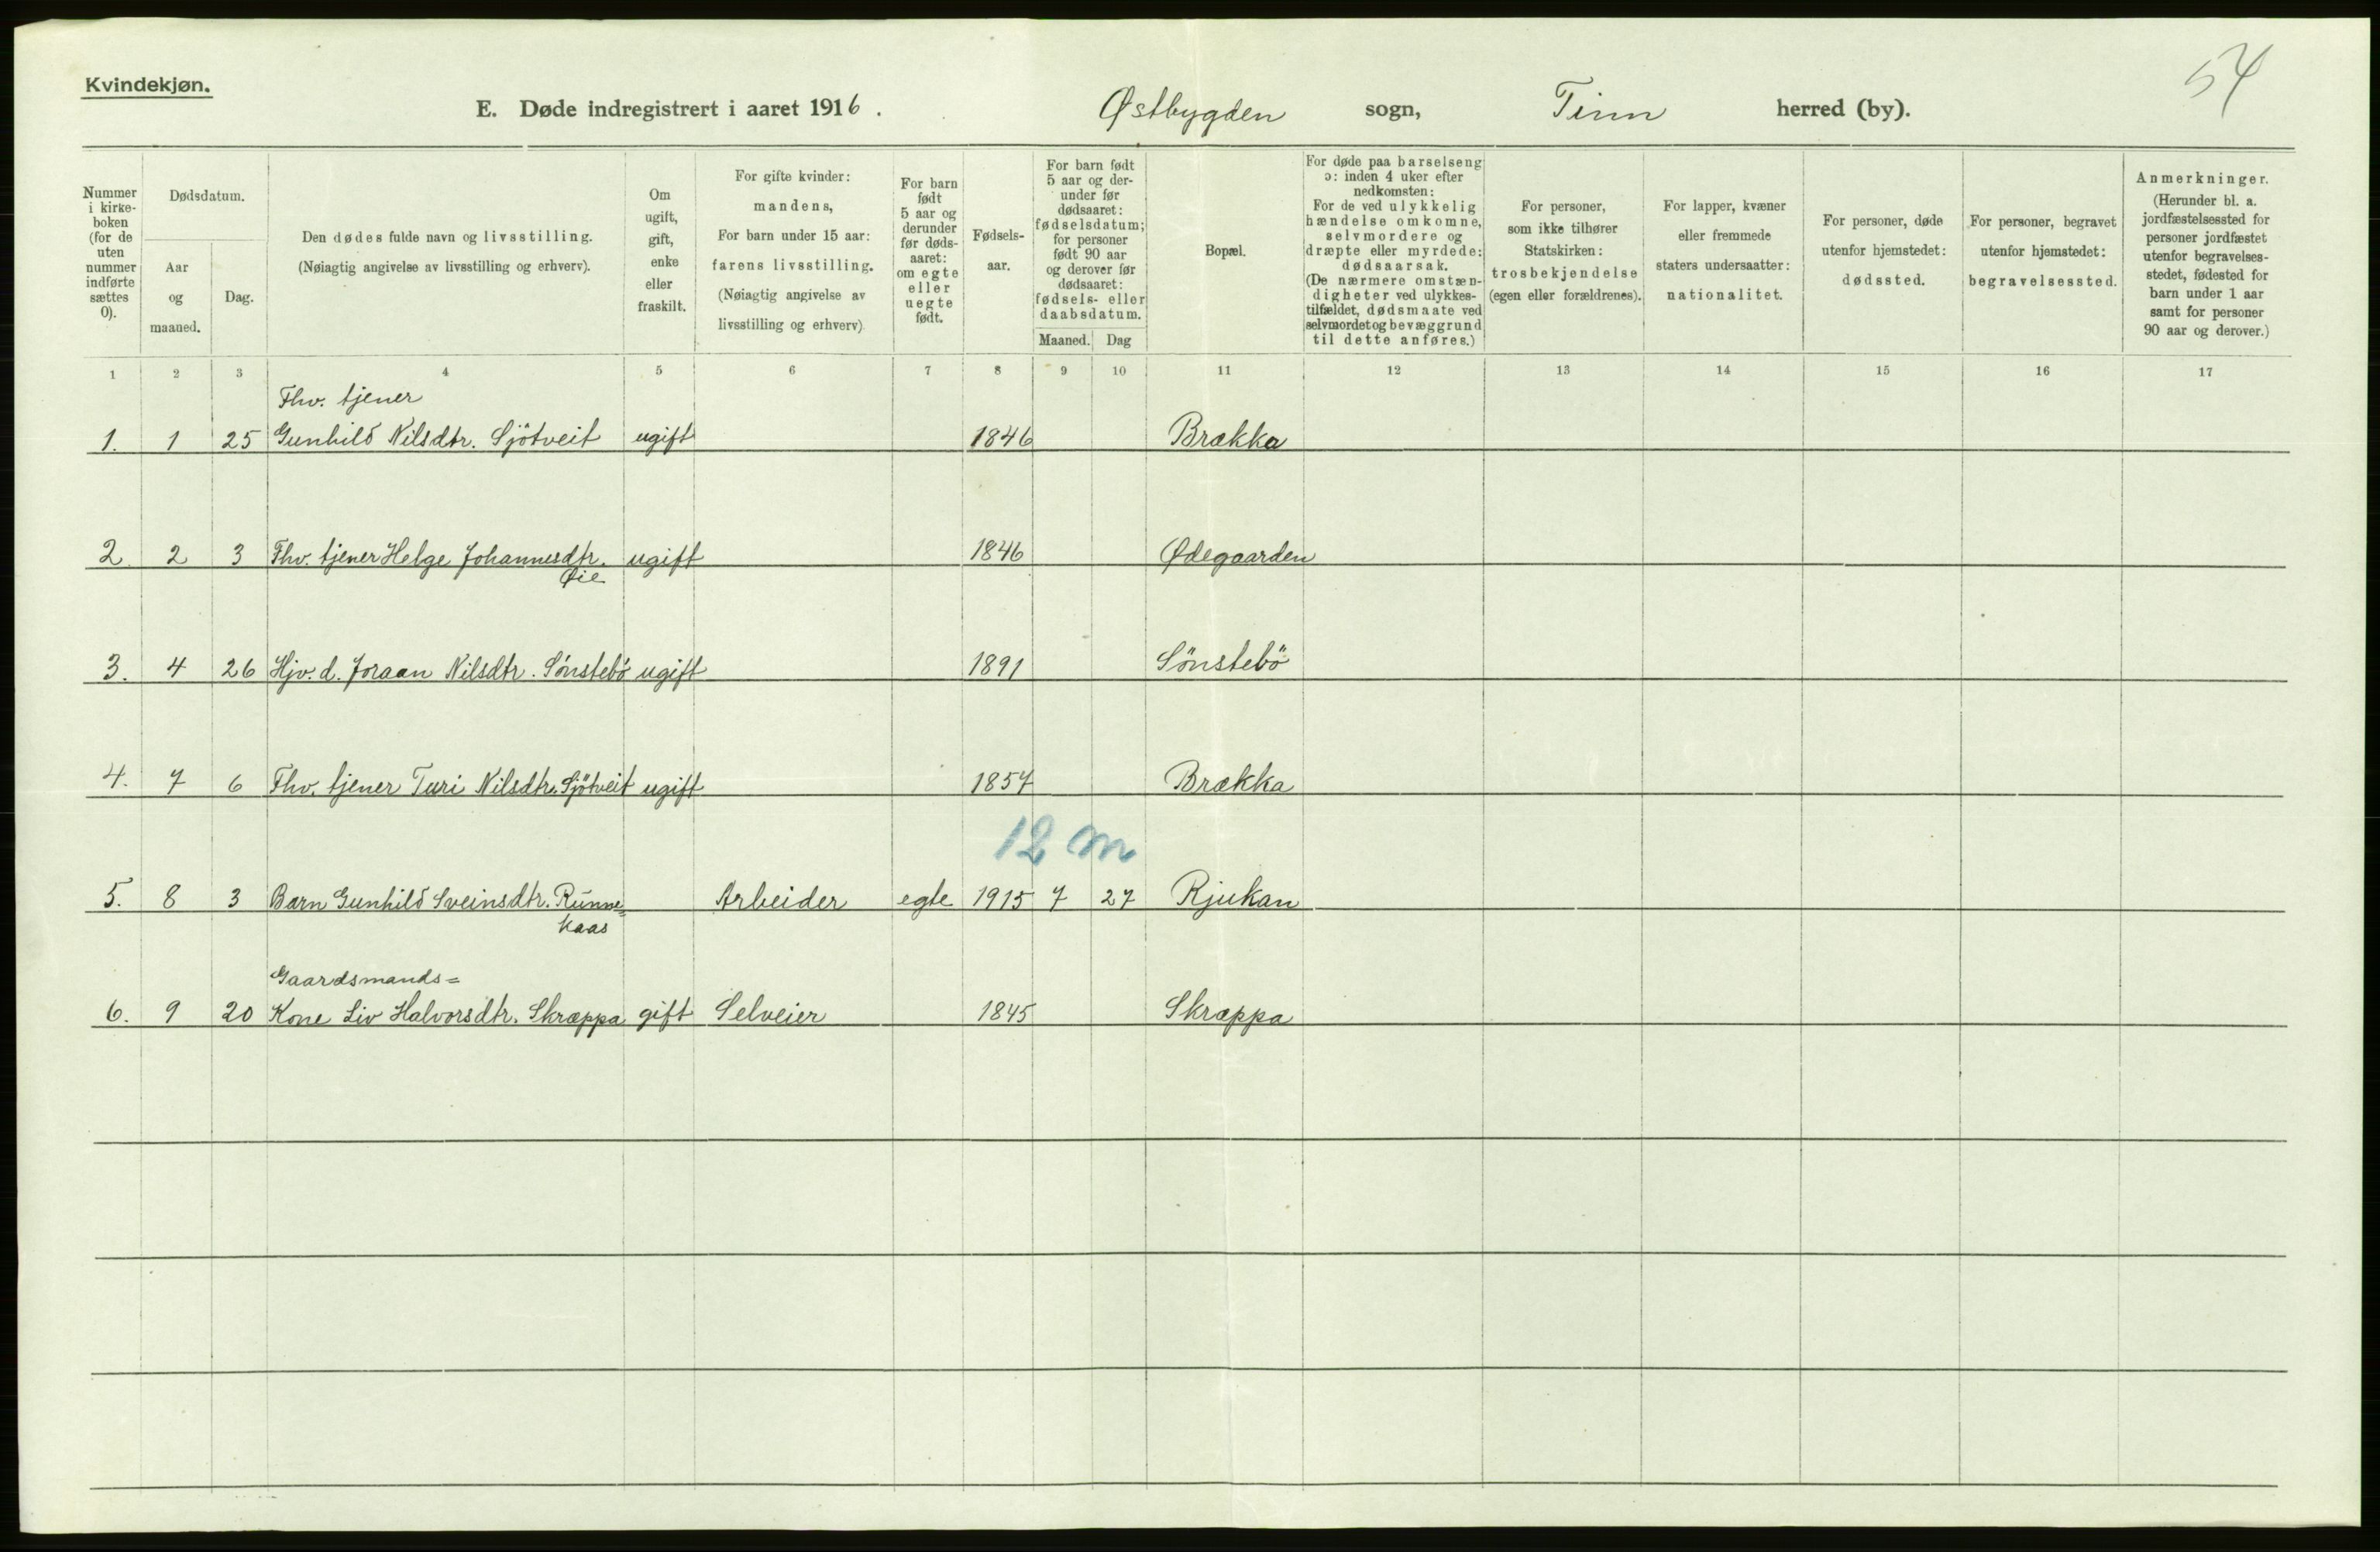 Kvindekjøn.
54
E. Døde indregistrert i aaret 1916. Østbygden sogn, Tinn herred (by).
Nummer i kirke-boken (for de uten nummer indførte sættes 0).
Dødsdatum.
Aar og maaned.
Dag.
Den dødes fulde navn og livsstilling.
(Nøiagtig angivelse av livsstilling og erhverv).
Om ugift, gift, enke eller fraskilt.
For gifte kvinder: mandens,
For barn under 15 aar: farens livsstilling.
(Nøiagtig angivelse av livsstilling og erhverv)
For barn født 5 aar og derunder før døds-aaret: om egte eller uegte født.
Fødsels-aar.
For barn født 5 aar og der-under før dødsaaret: fødselsdatum; for personer født 90 aar og derover før dødsaaret: fødsels- eller daabsdatum.
Maaned.
Dag
Bopæl.
For døde paa barselseng ɔ: inden 4 uker efter nedkomsten:
For de ved ulykkelig hændelse omkomne, selvmordere og dræpte eller myrdede: dødsaarsak.
(De nærmere omstæn-digheter ved ulykkes-tilfældet, dødsmaate ved selvmordet og bevæggrund til dette anføres.)
For personer, som ikke tilhører Statskirken: trosbekjendelse (egen eller forældrenes).
For lapper, kvæner eller fremmede staters undersaatter: nationalitet.
For personer, døde utenfor hjemstedet: dødssted.
For personer, begravet utenfor hjemstedet: begravelsessted.
Anmerkninger.
(Herunder bl. a. jordfæstelsessted for personer jordfæstet utenfor begravelses-stedet, fødested for barn under 1 aar samt for personer 90 aar og derover.)
1 2 3 4 5 6 7 8 9 10 11 12 13 14 15 16 17
Fhv. tjener
1. 1 25 Gunhild Nilsdtr. Sjötveit ugift 1846 Brækka
2. 2 3 Fhv. tjener Helge Johannesdtr. ugift 1846 Ødegaarden
Øie
3. 4 26 Hjv. d. Joraan Nilsdtr. Sönstebö ugift 1891 Sönstebö
4. 7 6 Fhv. tjener Turi Nilsdtr. Sjötveit ugift 1857 Brækka
12 m
5. 8 3 Barn Gunhild Sveinsdtr. Runne= Arbeider egte 1915 7 27 Rjukan
kaas
Gaardsmands=
6. 9 20 Kone Liv Halvorsdtr. Skræppa gift Selveier 1845 Skræppa